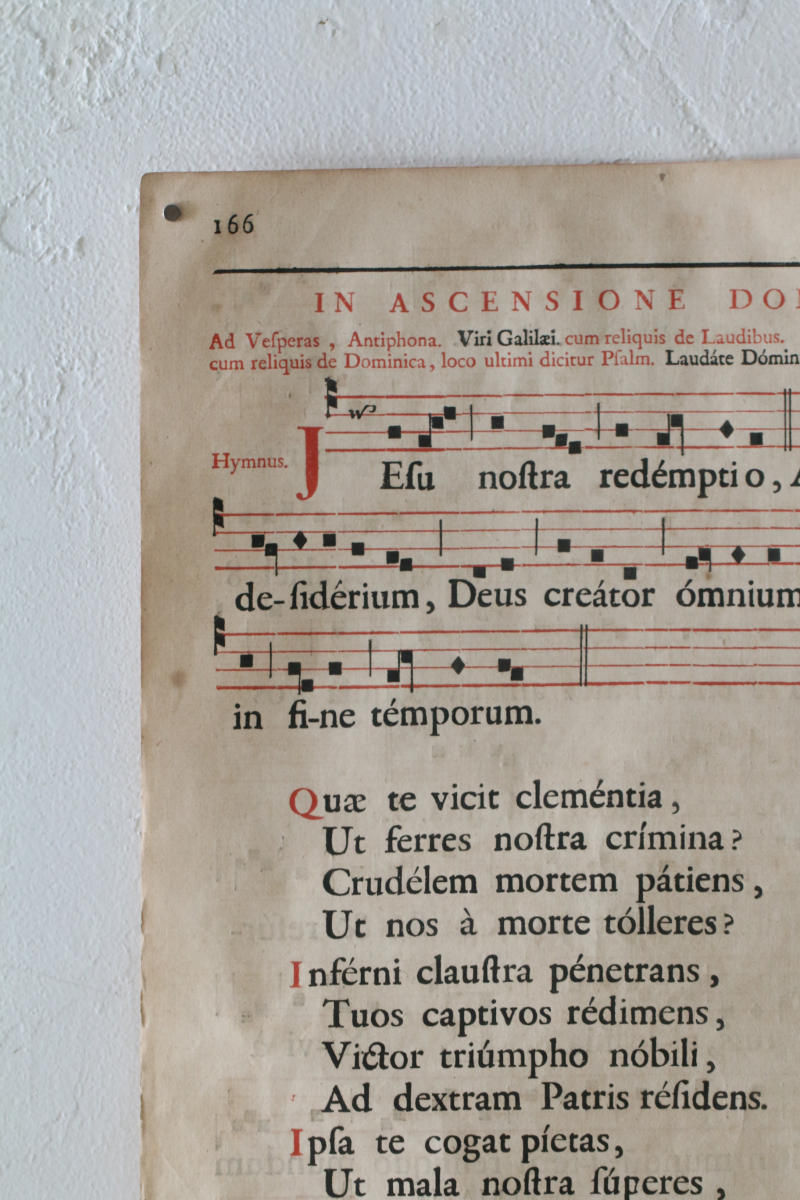 166
IN ASCENSIONE
Ad Veſperas , Antiphona. Viri Galilæi. cum reliquis de Laudibus.
cum reliquis de Dominica, loco ultimi dicitur Pſalm. Laudáte Dómin
Hymnus. JEſu noſtra redémptio,
de-ſidérium, Deus creátor ómnium
in fi-ne témporum.
Quæ te vicit cleméntia,
Ut ferres noſtra crímina?
Crudélem mortem pátiens,
Ut nos à morte tólleres?
Inférni clauſtra pénetrans,
Tuos captivos rédimens,
Victor triúmpho nóbili,
Ad dextram Patris réſidens.
Ipſa te cogat píetas,
Ut mala noſtra ſúperes,